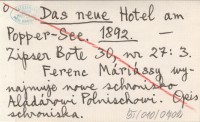 Das neue Hotel am
Popper-See. 1892. —
Zipser Bote 30, nr 27: 3.
Ferenc Máriássy wy-
najmuje nowe schronisko
Aladárowi Polnischowi. Opis
schroniska.